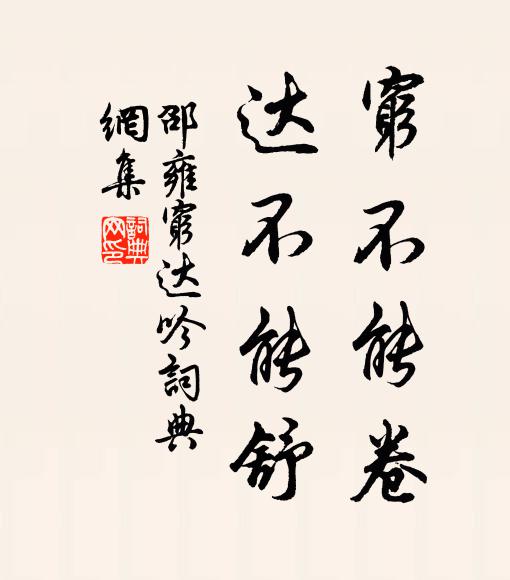 窮不能卷
达不能舒
邵雍窮达吟詞典
網集
詞典
网印